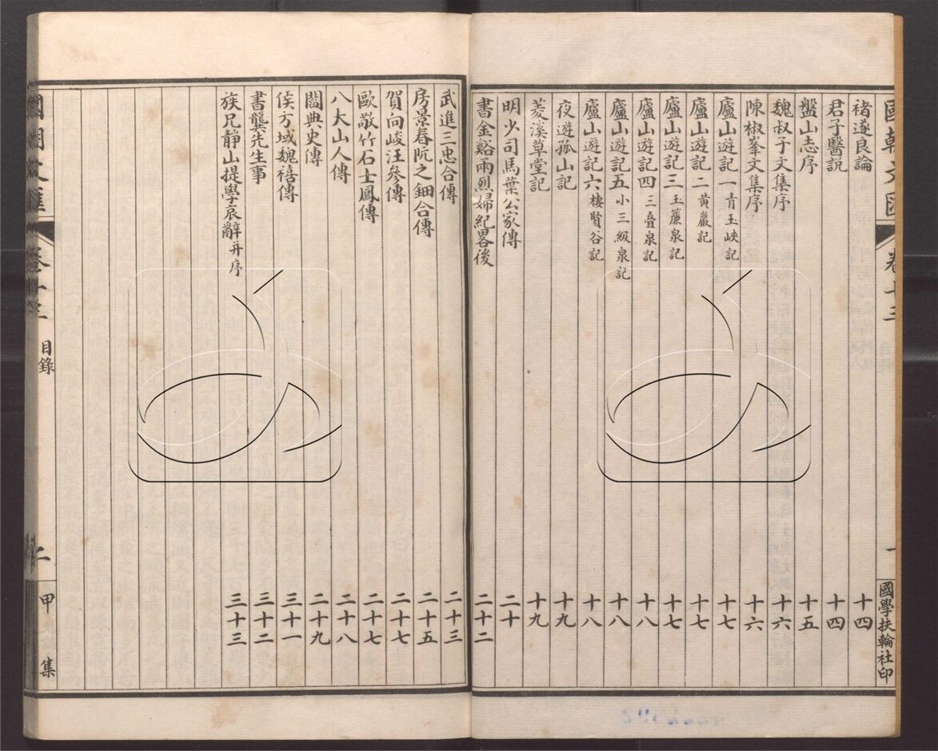 國朝文匯 卷十三 一 國學扶輪社印
褚遂良論 十四
君子醫說 十四
盤山志序 十五
魏叔子文集序 十六
陳椒峯文集序 十六
廬山遊記一青玉峽記 十七
廬山遊記二黃巖記 十七
廬山遊記三玉簾泉記 十七
廬山遊記四三疊泉記 十八
廬山遊記五小三級泉記 十八
廬山遊記六棲賢谷記 十八
夜遊孤山記 十九
菱溪草堂記 十九
明少司馬葉公家傳 二十
書金谿兩烈婦紀畧後 二十二
武進三忠合傳 二十三
房景春阮之鈿合傳 二十五
賀向峻汪參傳 二十七
歐敬竹石士鳳傳 二十七
八大山人傳 二十八
閻典史傳 二十九
侯方域魏禧傳 三十一
書龔先生事 三十二
族兄靜山提學哀辭并序 三十三
國朝文匯 卷十三 目錄 二 甲集